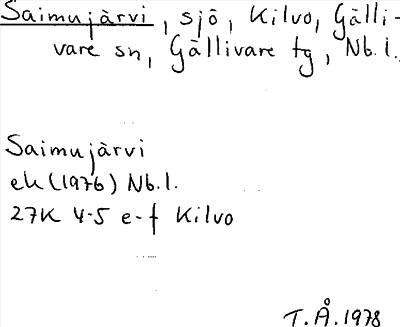 Saimujärvi, sjö, Kilvo, Gälli-
vare sn, Gällivare tg, Nb.l.
Saimujärvi
ek (1976) Nb.l.
27K 4-5 e-f Kilvo
T.Å.1978